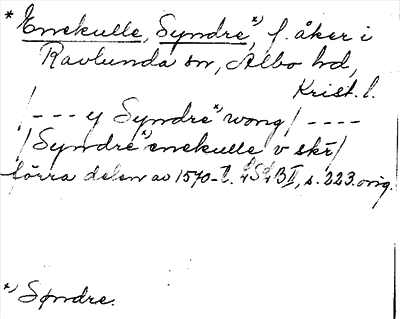 * Enekulle, Syndre *), f. åker i
Ravlunda sn, Albo hd,
Krist. l.
/--- y Syndre *) wong/ ----
/Syndre *) enekulle v skr/
förra delen av 1570-t. S B II, s. 223. orig.
*) Søndre.